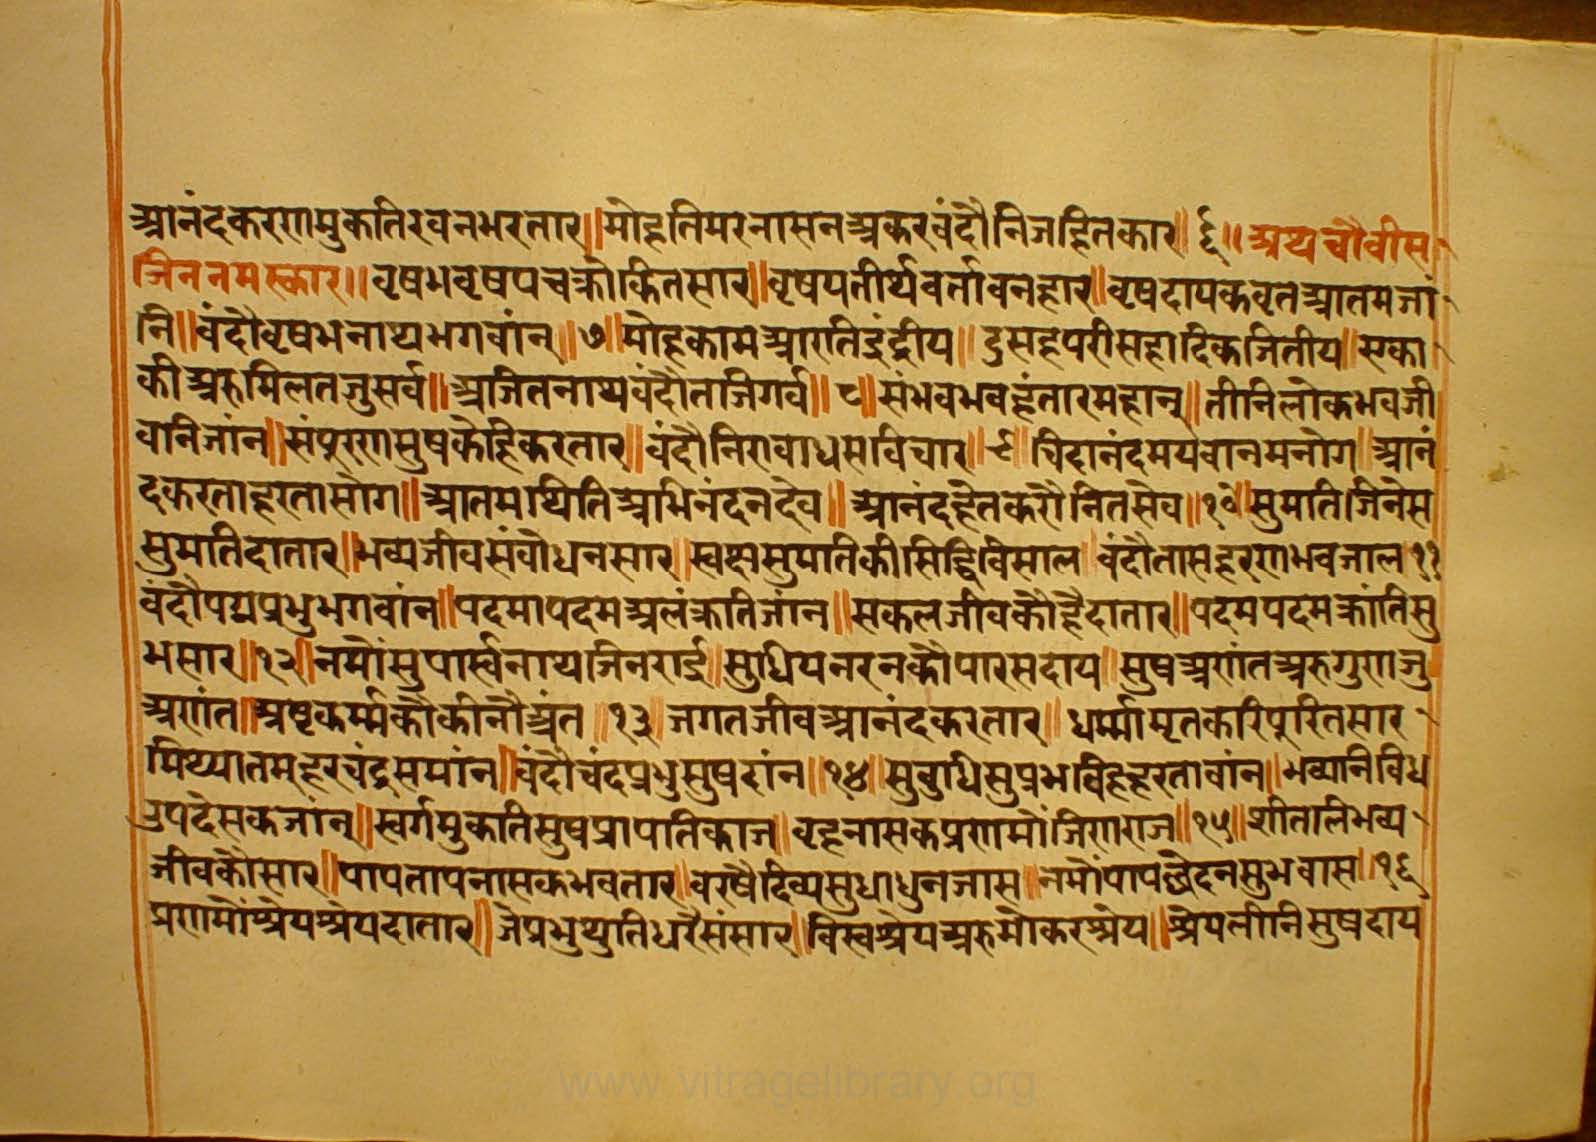 आनंदकरणमुकतिरवनभरतार॥मोहतिमरनासनअकरवंदौनिजहितकार॥६॥अथचौवीस
जिननमस्कार॥वृषभवृषपचक्रांकितसार॥वृषयतीर्थवर्तावनहार॥वृषदायकवृतआतमजां
नि॥वंदौवृषभनाथभगवांन्॥७॥मोहकामआरातिइंद्रीय॥दुसहपरीसहादिकजितीय॥एका
कीअरुमिलतजुसर्व॥अजितनाथवंदौतजिगर्व॥८॥संभवभवहंतारमहान्॥तीनिलोकभवजी
वनिजांन॥संपूरणसुषकौहिकरतार॥वंदौनिरावाधसविचार॥९॥चिदानंदमयवानमनोग॥आनं
दकरताहरतासोग॥आतमथितिअभिनंदनदेव॥आनंदहेतकरौनितसेव॥१०॥सुमतिजिनेस
सुमतिदातार॥भव्यजीवसंवोधनसार॥स्वछसुमतिकीसिद्धिविसाल॥वंदौतासहरणभवजाल११
वंदौपद्मप्रभुभगवांन॥पदमापदमअलंक्रतिजांन॥सकलजीवकौहैदातार॥पदमपदमक्रांतिसु
भसार॥१२॥नमौंसुपार्स्वनाथजिनराई॥सुधियनरनकौंपारसदाय॥सुषअणंतअरुगुणजु
अणंत॥अष्टकर्म्मकौकीनौअंत॥१३॥जगतजीवआनंदकरतार॥धर्म्मामृतकरिपूरितसार
मिथ्यातमहरचंद्रसमांन॥वंदौंचंदप्रभुसुषदांन॥१४॥सुवुधिसुप्रभविहहरतावांन॥भव्यनिविध
उपदेसकजांन्॥स्वर्गमुकतिसुषप्रापतिकाज॥वृहनासकप्रणमौंजिणराज॥१५॥शीतलभव्य
जीवकौसार॥पापतापनासकभवतार॥वरषैदिव्यसुधाधुनजास॥नमौंपापछेदनसुभवास॥१६
प्रणमौंश्रेयश्रेयदातार॥जेप्रभुथुतिधरैसंसार॥विस्वश्रेयअरुमोकरश्रेय॥श्रेयलीनिसुषदाय
www.vitragelibrary.org